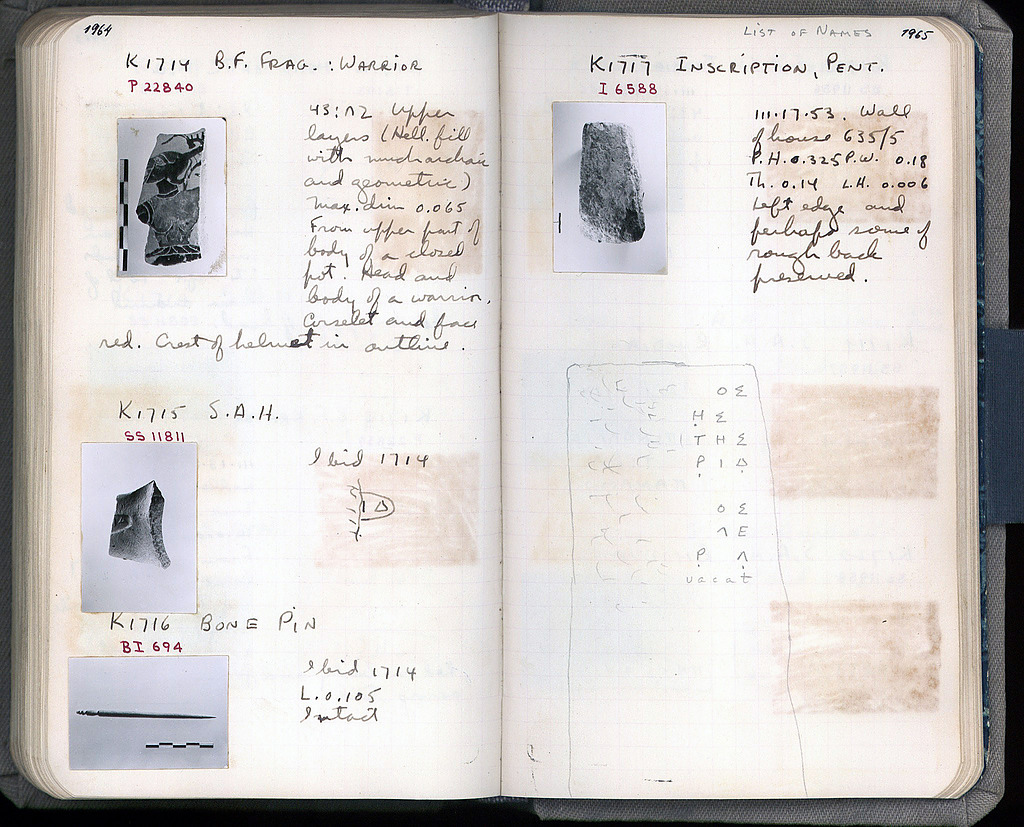 1964
K1714 B.F. FRAG. : WARRIOR
P 22840
43:Π2 Upper
layers (Hell. fill
with much archaic
and geometric)
Max. dim 0.065
From upper part of
body of a closed
pot. Head and
body of a warrior.
Corselet and face
red. Crest of helmet in outline.
K1715 S.A.H.
SS 11811
Ibid 1714
K1716 BONE PIN
BI 694
Ibid 1714
L. 0.105
Intact
LIST OF NAMES 1965
K1717 INSCRIPTION, PENT.
I 6588
111.17.53. Wall
of house 635/5
P.H. 0.325 P.W. 0.18
Th. 0.14 L.H. 0.006
Left edge and
perhaps some of
rough back
preserved.
Ο Σ
Η Σ
Ι Τ Η Σ
Ρ Ι Δ
Ο Σ
Λ Ε
Ρ Λ
vacat